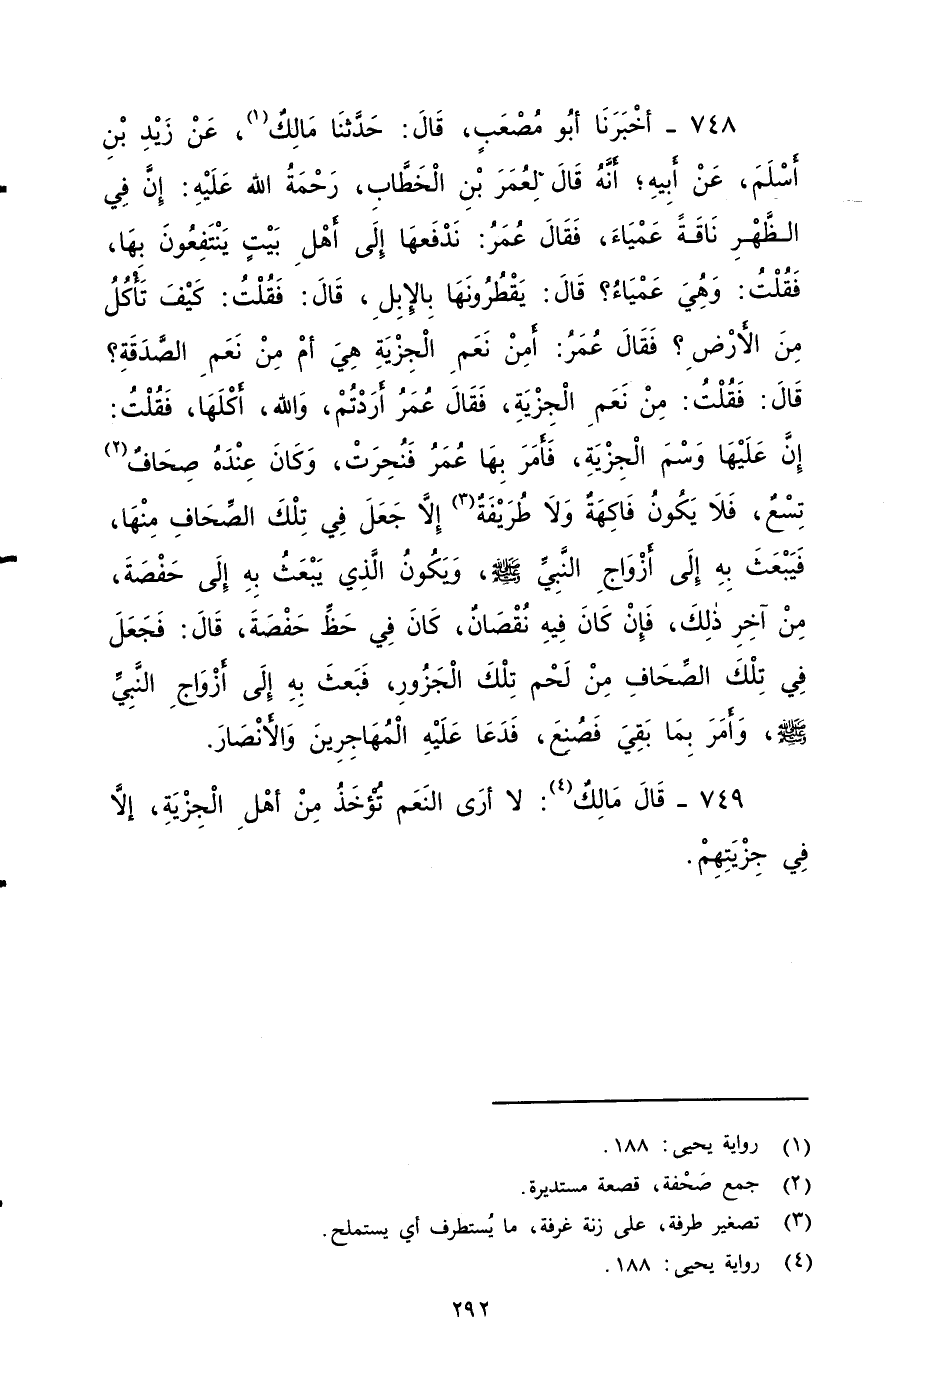 ٧٤٨ ـ أَخْبَرَنَا أَبُو مُصْعَبٍ، قَالَ: حَدَّثَنَا مَالِكٌ(١)، عَنْ زَيْدِ بْنِ
أَسْلَمَ، عَنْ أَبِيهِ؛ أَنَّهُ قَالَ لِعُمَرَ بْنِ الْخَطَّابِ، رَحْمَةُ الله عَلَيْهِ: إِنَّ فِي
الظَّهْرِ نَاقَةً عَمْيَاءَ، فَقَالَ عُمَرُ: نَدْفَعهَا إِلَى أَهْلِ بَيْتٍ يَنْتَفِعُونَ بِهَا،
فَقُلْتُ: وَهُيَ عَمْيَاءُ؟ قَالَ: يَقْطُرُونَهَا بِالإِبِلِ، قَالَ: فَقُلْتُ: كَيْفَ تَأْكُلُ
مِنَ الأَرْضِ؟ فَقَالَ عُمَرُ: أَمِنْ نَعَمِ الْجِزْيَةِ هِيَ أَمْ مِنْ نَعَمِ الصَّدَقَةِ؟
قَالَ: فَقُلْتُ: مِنْ نَعَمِ الْجِزْيَةِ، فَقَالَ عُمَرُ أَرَدْتُمْ، وَالله، أَكْلَهَا، فَقُلْتُ:
إِنَّ عَلَيْهَا وَسْمَ الْجِزْيَةِ، فَأَمَرَ بِهَا عُمَرُ فَنُحِرَتْ، وَكَانَ عِنْدَهُ صِحَافٌ(٢)
تِسْعٌ، فَلَا يَكُونُ فَاكِهَةٌ وَلَا طُرَيْفَةٌ(٣) إِلَّا جَعَلَ فِي تِلْكَ الصِّحَافِ مِنْهَا،
فَيَبْعَثَ بِهِ إِلَى أَزْوَاجِ النَّبِيِّ ﷺ، وَيَكُونُ الَّذِي يَبْعَثُ بِهِ إِلَى حَفْصَةَ،
مِنْ آخِرِ ذٰلِكَ، فَإِنْ كَانَ فِيهِ نُقْصَانٌ، كَانَ فِي حَظِّ حَفْصَةَ، قَالَ: فَجَعَلَ
فِي تِلْكَ الصِّحَافِ مِنْ لَحْمِ تِلْكَ الْجَزُورِ، فَبَعثَ بِهِ إِلَى أَزْوَاجِ النَّبِيِّ
ﷺ، وَأَمَرَ بِمَا بَقِيَ فَصُنِعَ، فَدَعَا عَلَيْهِ الْمُهَاجِرِينَ وَالأَنْصَارَ.
٧٤٩ ـ قَالَ مَالِكٌ(٤): لا أَرَى النَعَم تُؤْخَذُ مِنْ أَهْلِ الْجِزْيَةِ، إِلَّا
فِي جِزْيَتِهِمْ.
(١) رواية يحيى: ١٨٨.
(٢) جمع صَحْفة، قصعة مستديرة.
(٣) تصغير طرفة، على زنة غرفة، ما يُستطرف أي يستملح.
(٤) رواية يحيى: ١٨٨.
٢٩٢